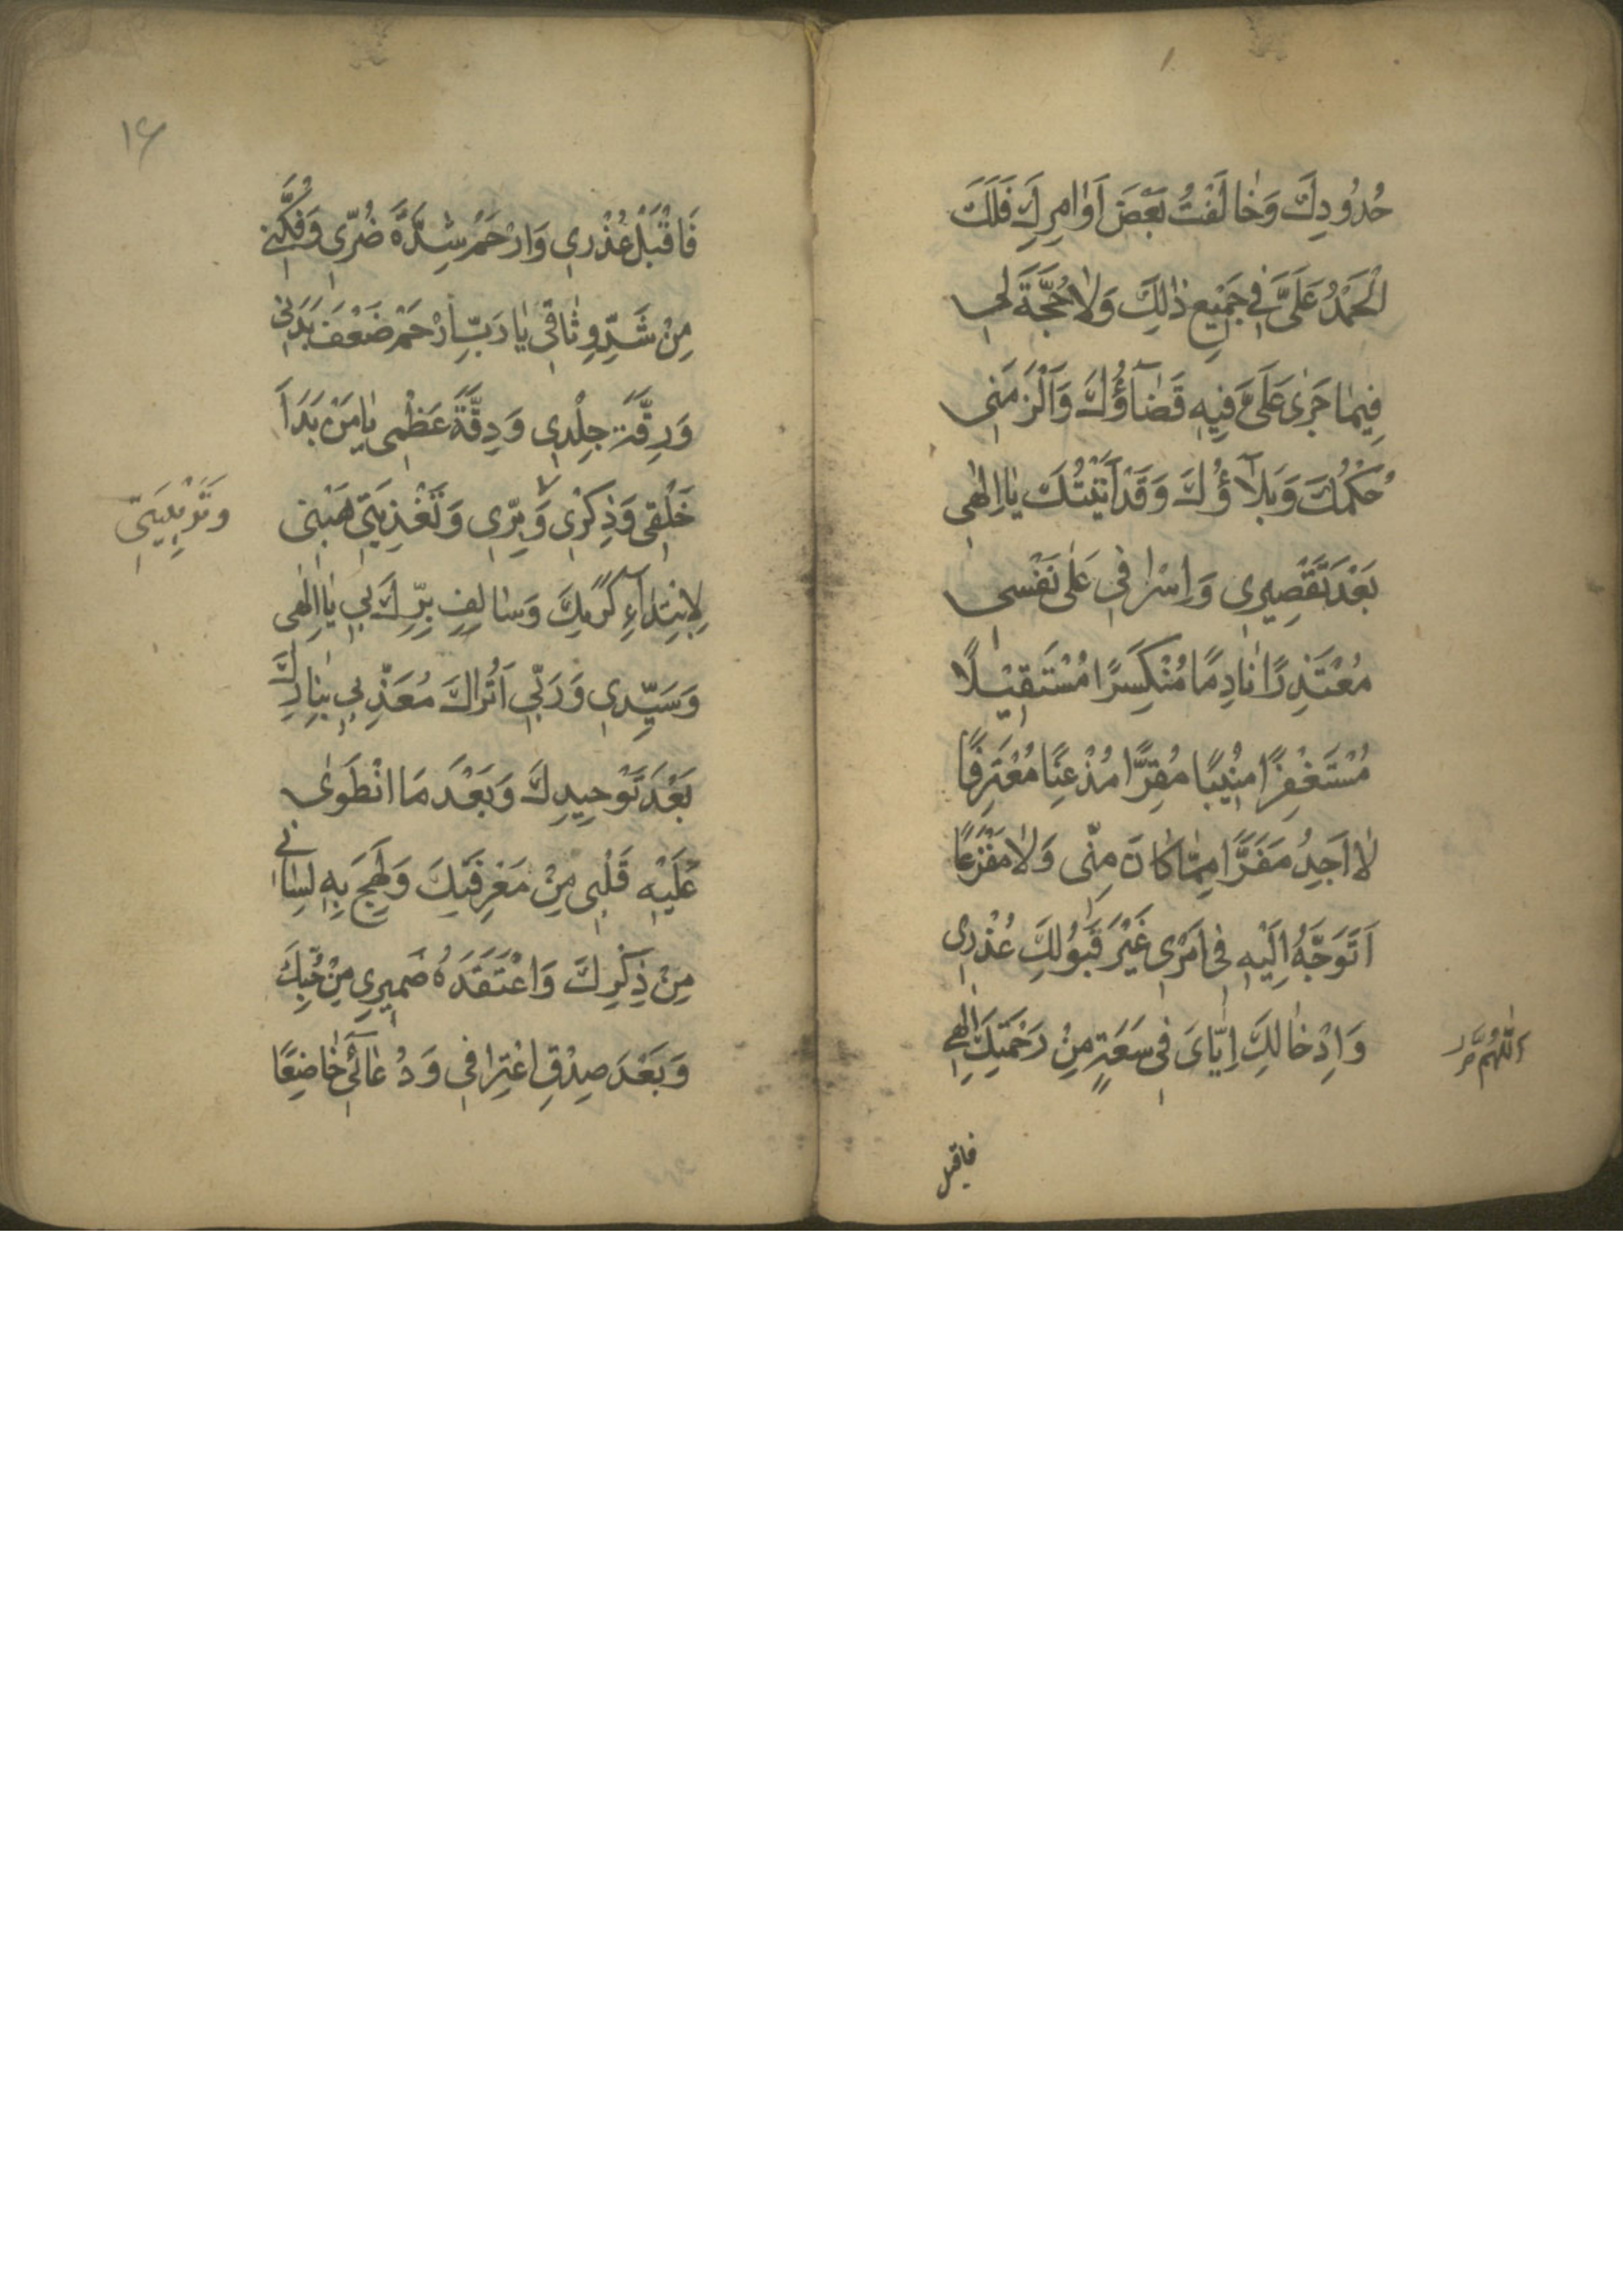 حُدُودِكَ وَخٰالَفْتُ بَعْضَ اَوٰامِرِكَ فَلَكَ
الْحَمْدُ عَلَىَّ فِي جَمِيْعِ ذٰلِكَ وَلاٰ حُجَّةَ لِي
فِيمٰا جَرٰى عَلَىَّ فِيهِ قَضٰآؤُكَ وَاَلْزَمَنِى
حُكْمُكَ وَبَلآؤُكَ وَقَدْ اَتَيْتُكَ يٰا اِلٰهِى
بَعْدَ تَقْصِيرِى وَاِسْرٰافِى عَلٰى نَفْسِى
مُعْتَذِرًا نٰادِمًا مُنْكَسِرًا مُسْتَقِيْلاً
مُسْتَغْفِرًا مُنِيْبًا مُقِرًّا مُذْعِنًا مُعْتَرِفًا
لاٰ اَجِدُ مَفَرًّا مِمّٰا كٰانَ مِنّى وَلاٰ مَفْزَعًا
اَتَوَجَّهُ اِلَيْهِ فِى اَمْرِى غَيْرَ قَبُولِكَ عُذْرِى
وَاِدْخٰالِكَ اِيّٰاىَ فِى سَعَةٍ مِنْ رَحْمَتِكَ اِلٰهِى
اَللّٰهُمَّ
فاقبل
١٤
فَاقْبَلْ عُذْرِى وَارْحَمْ شِدَّةَ ضُرّى وَفُكَّنِى
مِنْ شَدِّ وِثٰاقِى يٰا رَبِّ ارْحَمْ ضَعْفَ بَدَنِى
وَرِقَّةَ جِلْدِى وَدِقَّةَ عَظْمِى يٰا مَنْ بَدَاَ
خَلْقِى وَذِكْرِى وَبِرّى وَتَغْذِيَتِى هَبْنِى
وَتَرْبِيَتِى
لِابْتِدٰآءِ كَرَمِكَ وَسٰالِفِ بِرِّكَ بِى يٰا اِلٰهِى
وَسَيِّدِى وَرَبّى اَتُرٰاكَ مُعَذِّبِى بِنٰارِكَ
بَعْدَ تَوْحِيدِكَ وَبَعْدَ مَا انْطَوٰى
عَلَيْهِ قَلْبِى مِنْ مَعْرِفَتِكَ وَلَهِجَ بِهِ لِسٰانِى
مِنْ ذِكْرِكَ وَاعْتَقَدَهُ ضَمِيرِى مِنْ حُبِّكَ
وَبَعْدَ صِدْقِ اعْتِرٰافِى وَدُعٰآئِى خٰاضِعًا